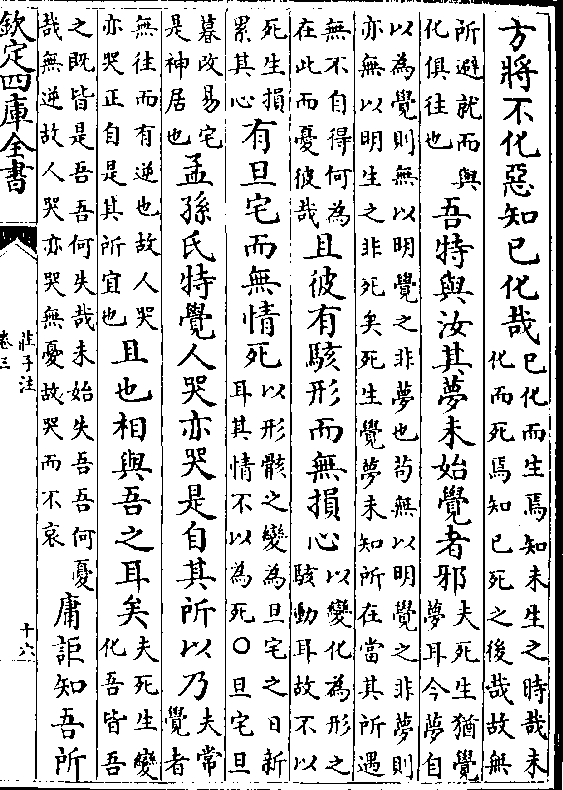 方將不化惡知已化哉已化而生焉知未生之時哉未化而死焉知已死之後哉故無
所避就而與化俱往也吾特與汝其夢未始覺者邪夫死生猶覺夢耳今夢自
以為覺則無以明覺之非夢也茍無以明覺之非夢則亦無以明生之非死矣死生覺夢未知所在當其所遇
無不自得何為在此而憂彼哉且彼有駭形而無損心以變化為形之駭動耳故不以
死生損累其心有旦宅而無情死以形骸之變為旦宅之日新耳其情不以為死○旦宅旦
暮改易宅是神居也孟孫氏特覺人哭亦哭是自其所以乃夫常覺者
無往而有逆也故人哭亦哭正自是其所宜也且也相與吾之耳矣夫死生變化吾皆吾
之既皆是吾吾何失哉未始失吾吾何憂哉無逆故人哭亦哭無憂故哭而不哀庸詎知吾所
欽定四庫全書
莊子注
卷三
十六